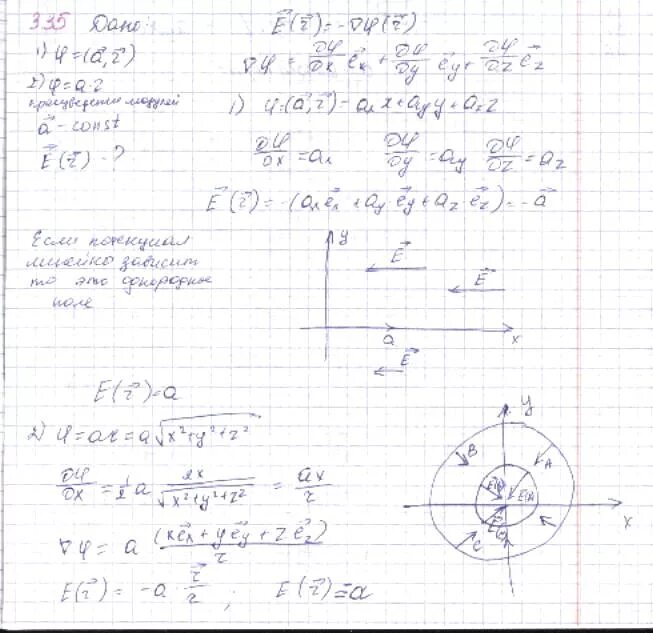 335 Дано:
1) φ=(a⃗,r⃗)
2) φ=a·r
произведение модулей
a⃗ - const
E⃗(r⃗) - ?
E⃗(r⃗)=-∇φ(r⃗)
∇φ = ∂φ/∂x e⃗x + ∂φ/∂y e⃗y + ∂φ/∂z e⃗z
1) φ=(a⃗,r⃗)=axx+ayy+azz
∂φ/∂x=ax ∂φ/∂y=ay ∂φ/∂z=az
E⃗(r⃗)=-(axe⃗x+ay e⃗y+az e⃗z)=-a⃗
Если потенциал
линейно зависит
то это однородное
поле
y
E⃗
E⃗
a
x
E⃗
E(r⃗)=a
2) φ=ar=a√x²+y²+z²
∂φ/∂x=1/2 a 2x/√x²+y²+z² = ax/r
∇φ= a (xe⃗x+ye⃗y+ze⃗z)/r
E(r⃗)= -a r⃗/r ; E(r⃗)=a
y
B
A
E(A)
C
x